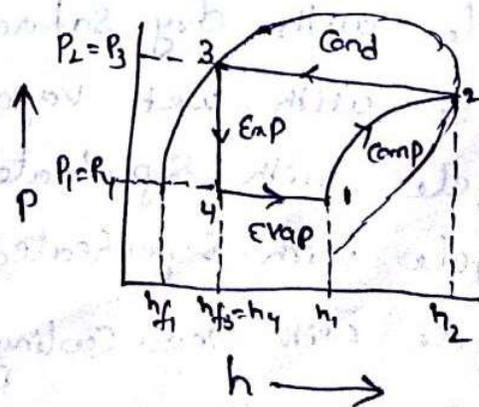 P₂ = P₃
3
Cond
2
Exp
Comp
P₁ = P₄
4
1
Evap
P
hf₁
hf₃ = h₄
h₁
h₂
h